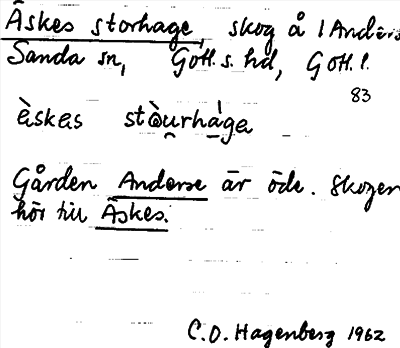 Äskes storhage, skog å 1 Anders
Sanda sn, Gotl. s. hd, Gotl. l.
83
ὲskɛs stɑ̀u̯rhá̱gɛ
Gården Anderse är öde. Skogen
hör till Äskes.
C.O. Hagenberg 1962